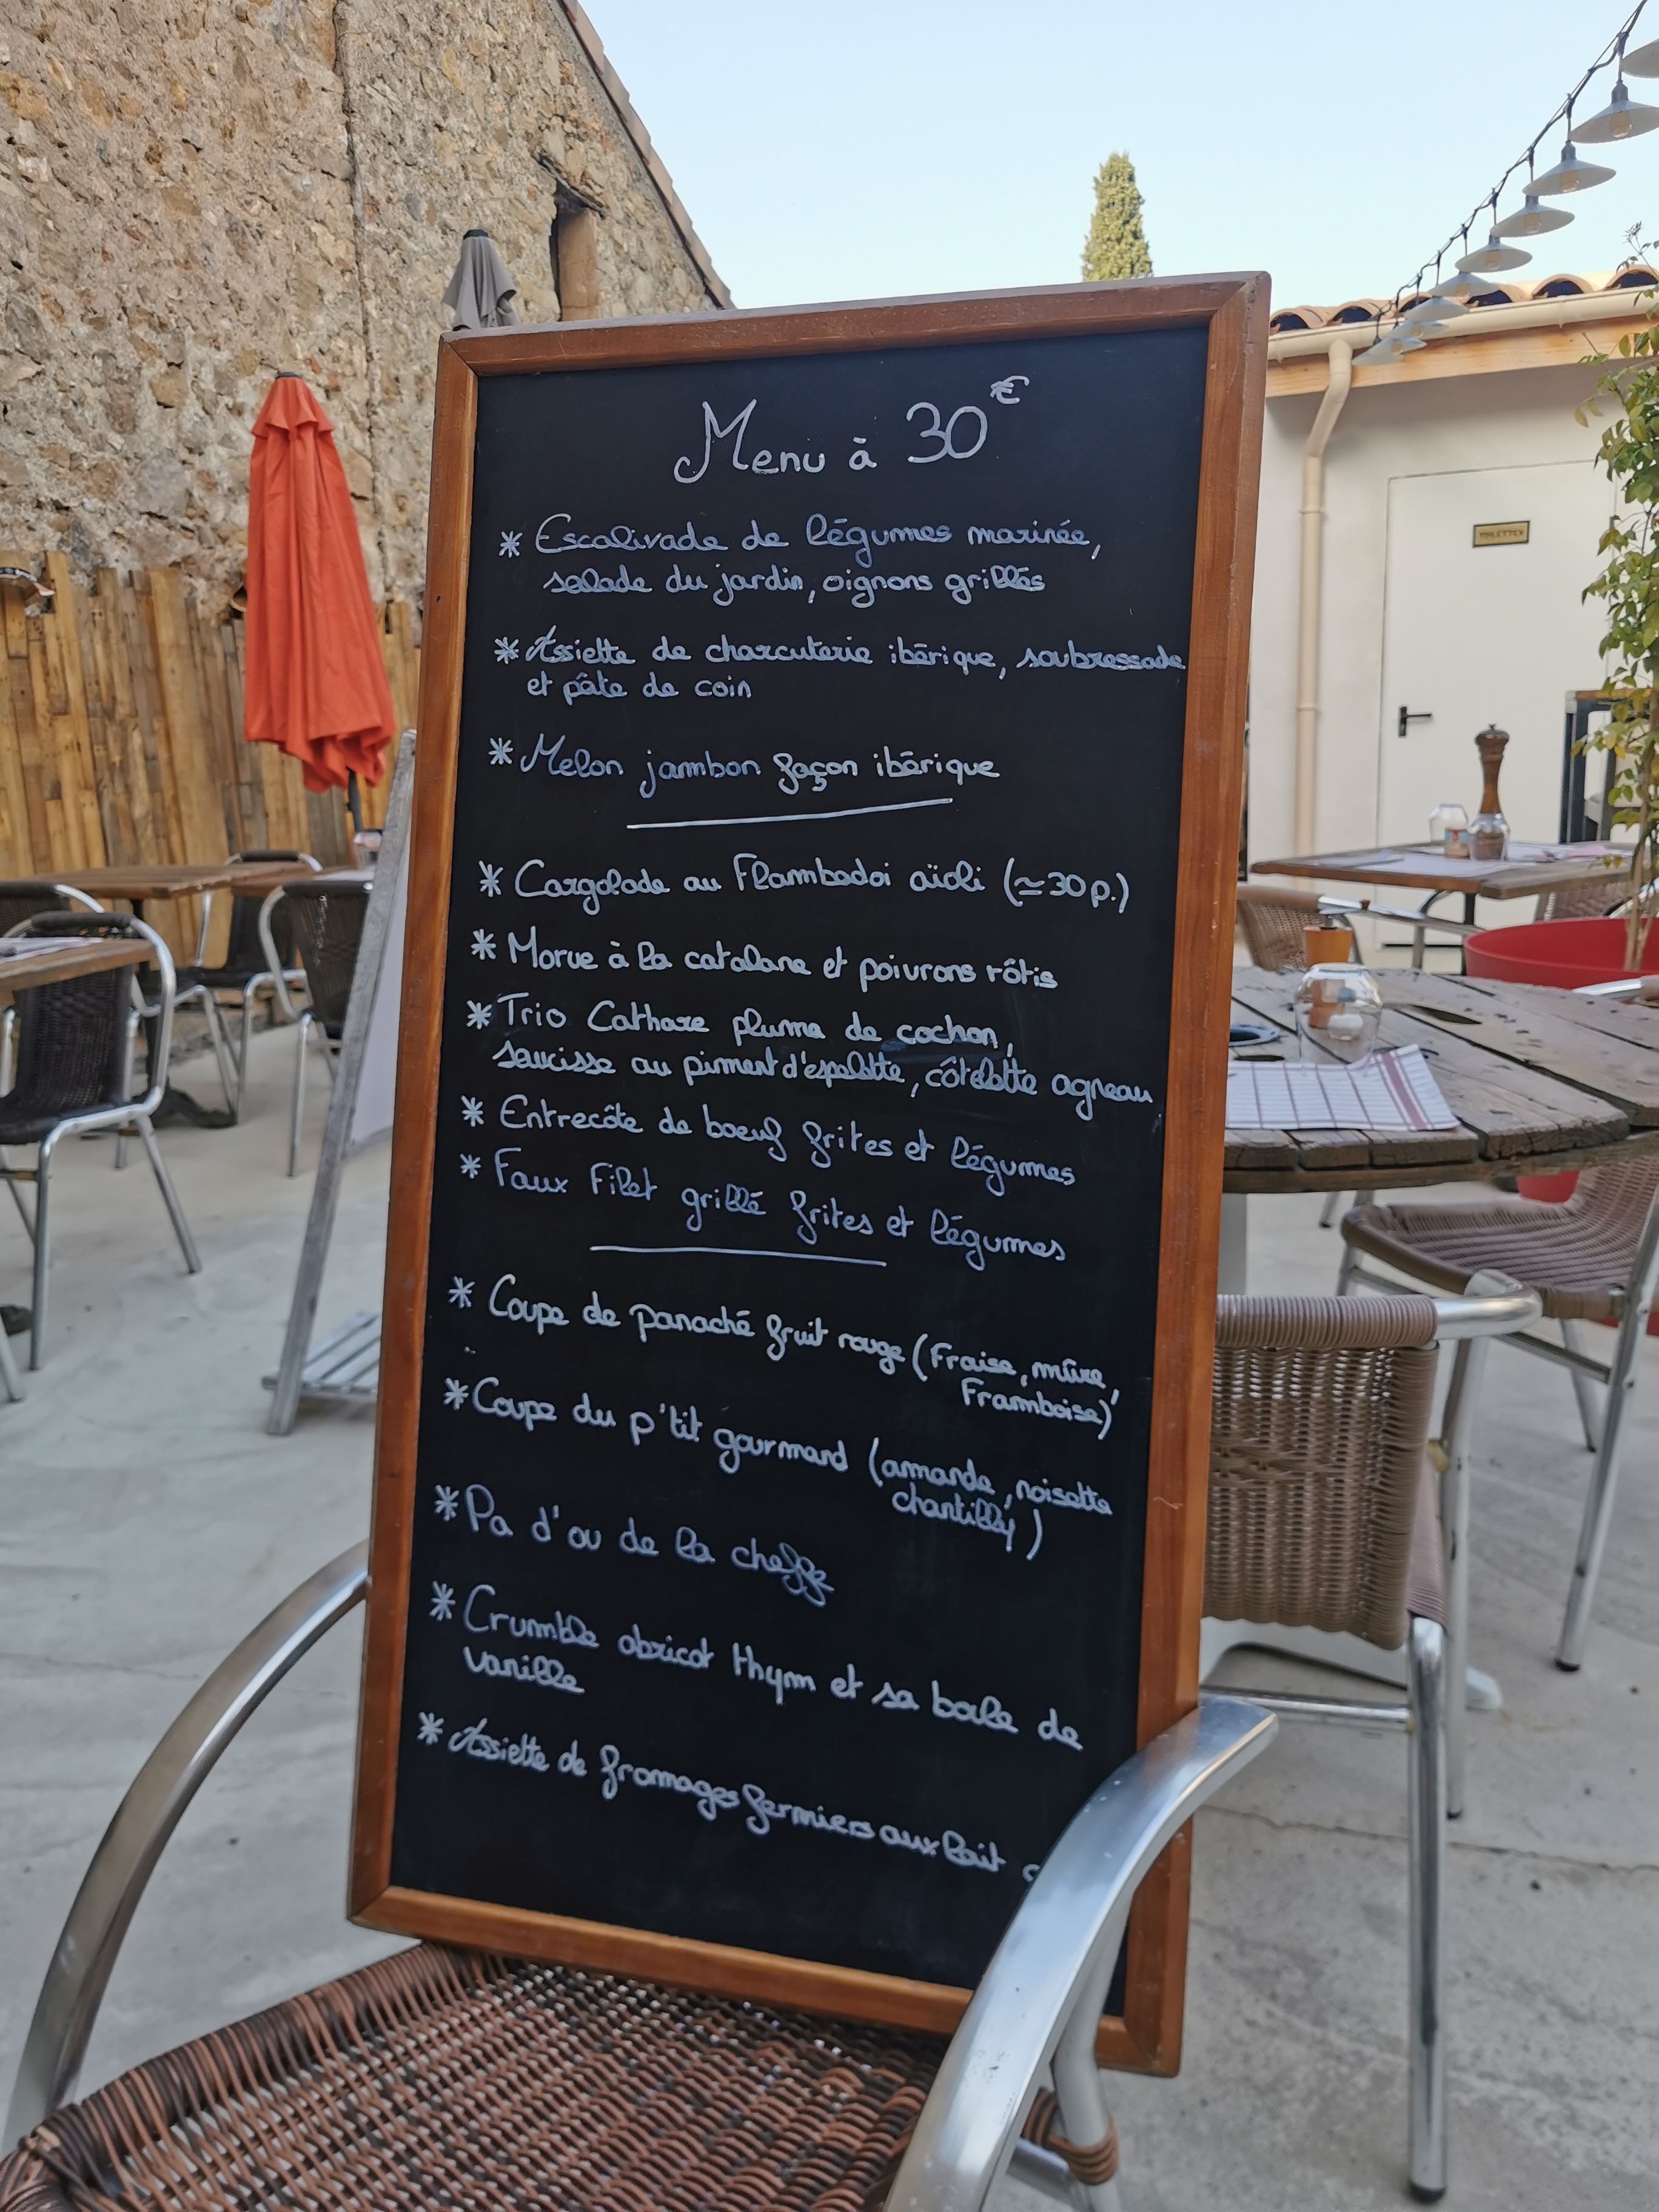 Menu à 30€
* Escalivade de légumes marinée,
salade du jardin, oignons grillés
* Assiette de charcuterie ibérique, soubressade
et pâte de coin
* Melon jambon façon ibérique
* Cargolade au Flambadoi aïoli (≃30p.)
* Morue à la catalane et poivrons rôtis
* Trio Cathare pluma de cochon,
saucisse au piment d'espelette, côtelette agneau
* Entrecôte de boeuf frites et légumes
* Faux Filet grillé frites et légumes
* Coupe de panaché fruit rouge (Fraise, mûre,
Framboise)
* Coupe du p'tit gourmand (amande, noisette
chantilly)
* Pa d'ou de la cheffe
* Crumble abricot thym et sa boule de
vanille
* Assiette de fromages fermiers aux lait
TOILETTES